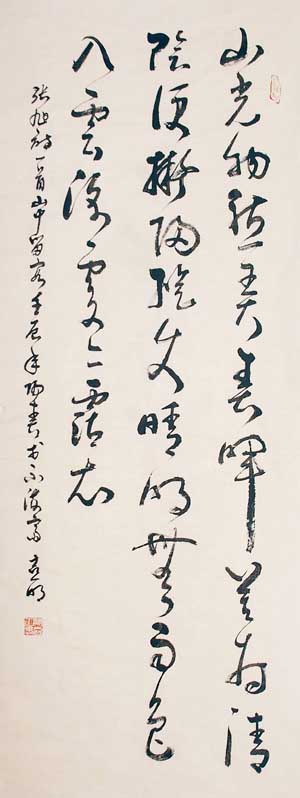 山光物態弄春暉莫為清
陰便擬歸縱使晴明無雨色
入雲深處亦霑衣
張旭詩一首山中留客壬辰年陽春於不齋